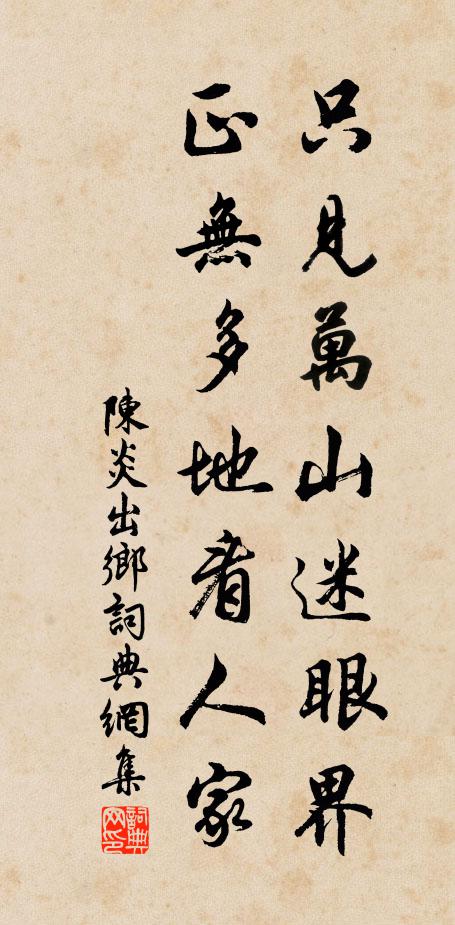 只見萬山迷眼界
正無多地着人家
陳炎出鄉詞典網集
詞典网印